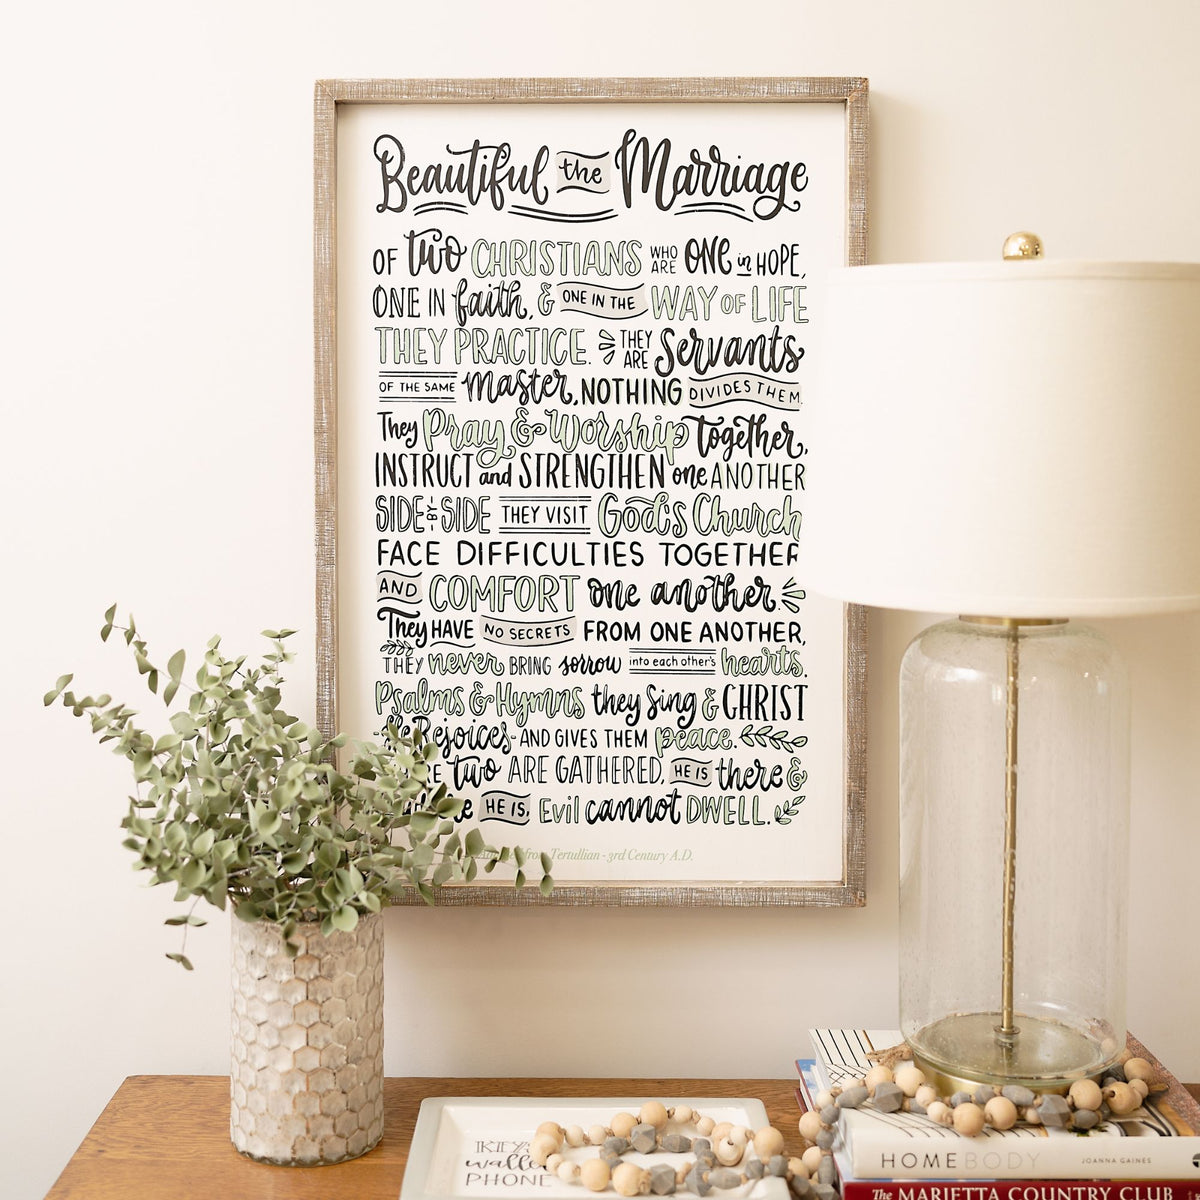 Beautiful the Marriage
OF two CHRISTIANS WHO ARE ONE in HOPE,
ONE IN faith, & ONE IN THE WAY OF LIFE
THEY PRACTICE. THEY ARE Servants
OF THE SAME Master, NOTHING DIVIDES THEM.
They Pray & Worship together,
INSTRUCT and STRENGTHEN one ANOTHER
SIDE-BY-SIDE THEY VISIT God's Church
FACE DIFFICULTIES TOGETHER
AND COMFORT one another.
They HAVE NO SECRETS FROM ONE ANOTHER,
THEY never BRING sorrow into each other's hearts.
Psalms & Hymns they Sing & CHRIST
Rejoices- AND GIVES THEM peace.
two ARE GATHERED, HE IS there &
HE IS, Evil cannot DWELL.
Tertullian - 3rd Century A.D.
KEYS
wallet
PHONE
HOMEBODY JOANNA GAINES
The MARIETTA COUNTRY CLUB